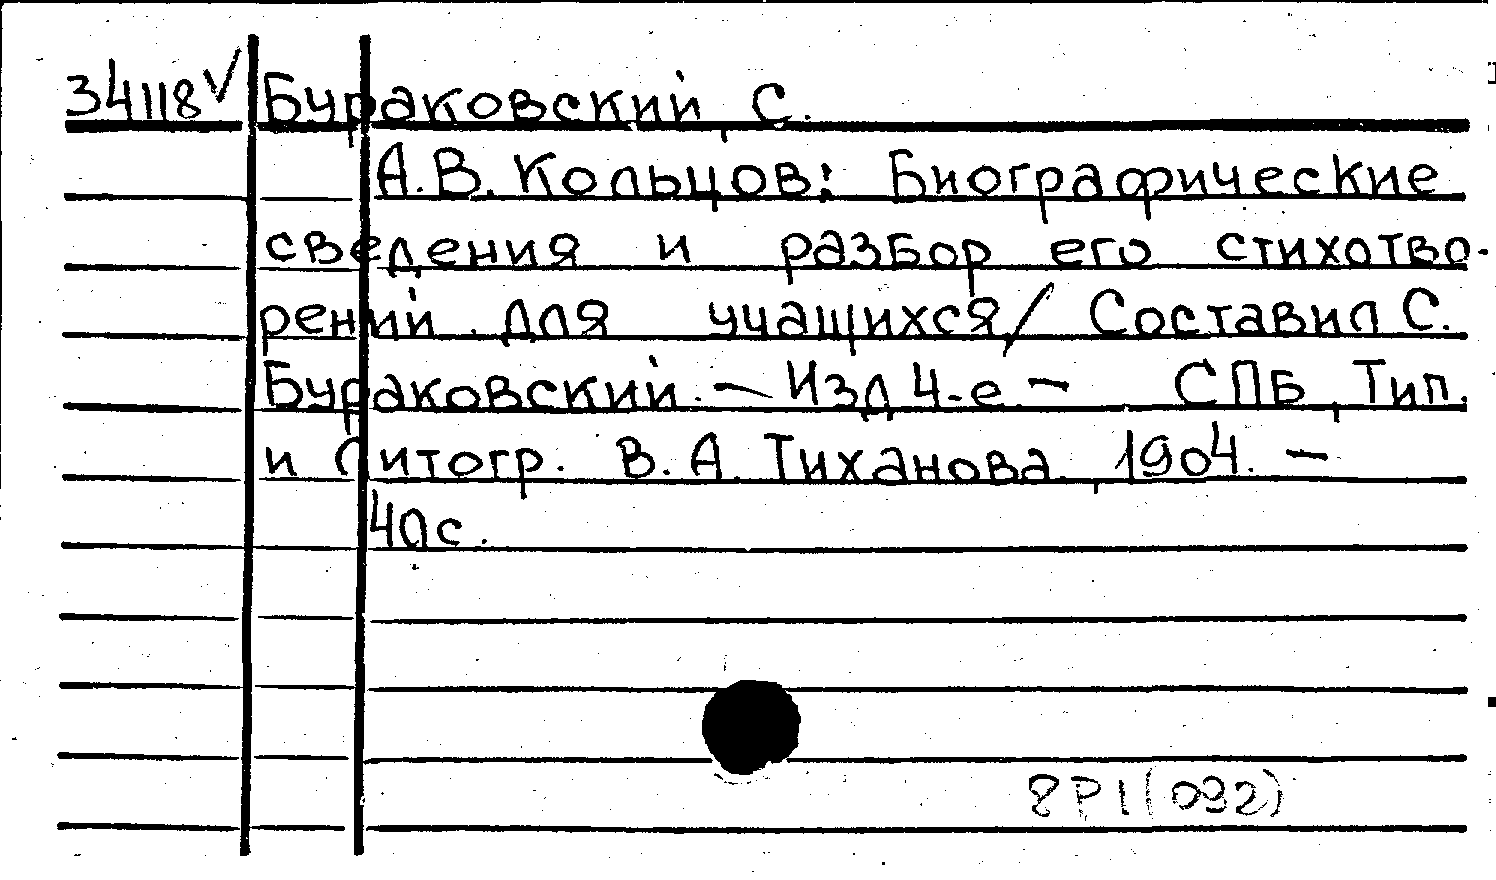 34118 √ Бураковский, С.
А.В. Кольцов: Биографические
сведения и разбор его стихотво-
рений для учащихся / Составил С.
Бураковский. — Изд 4-е — СПБ, Тип.
и Литогр. В.А. Тиханова, 1904. —
40с.
8Р1(092)